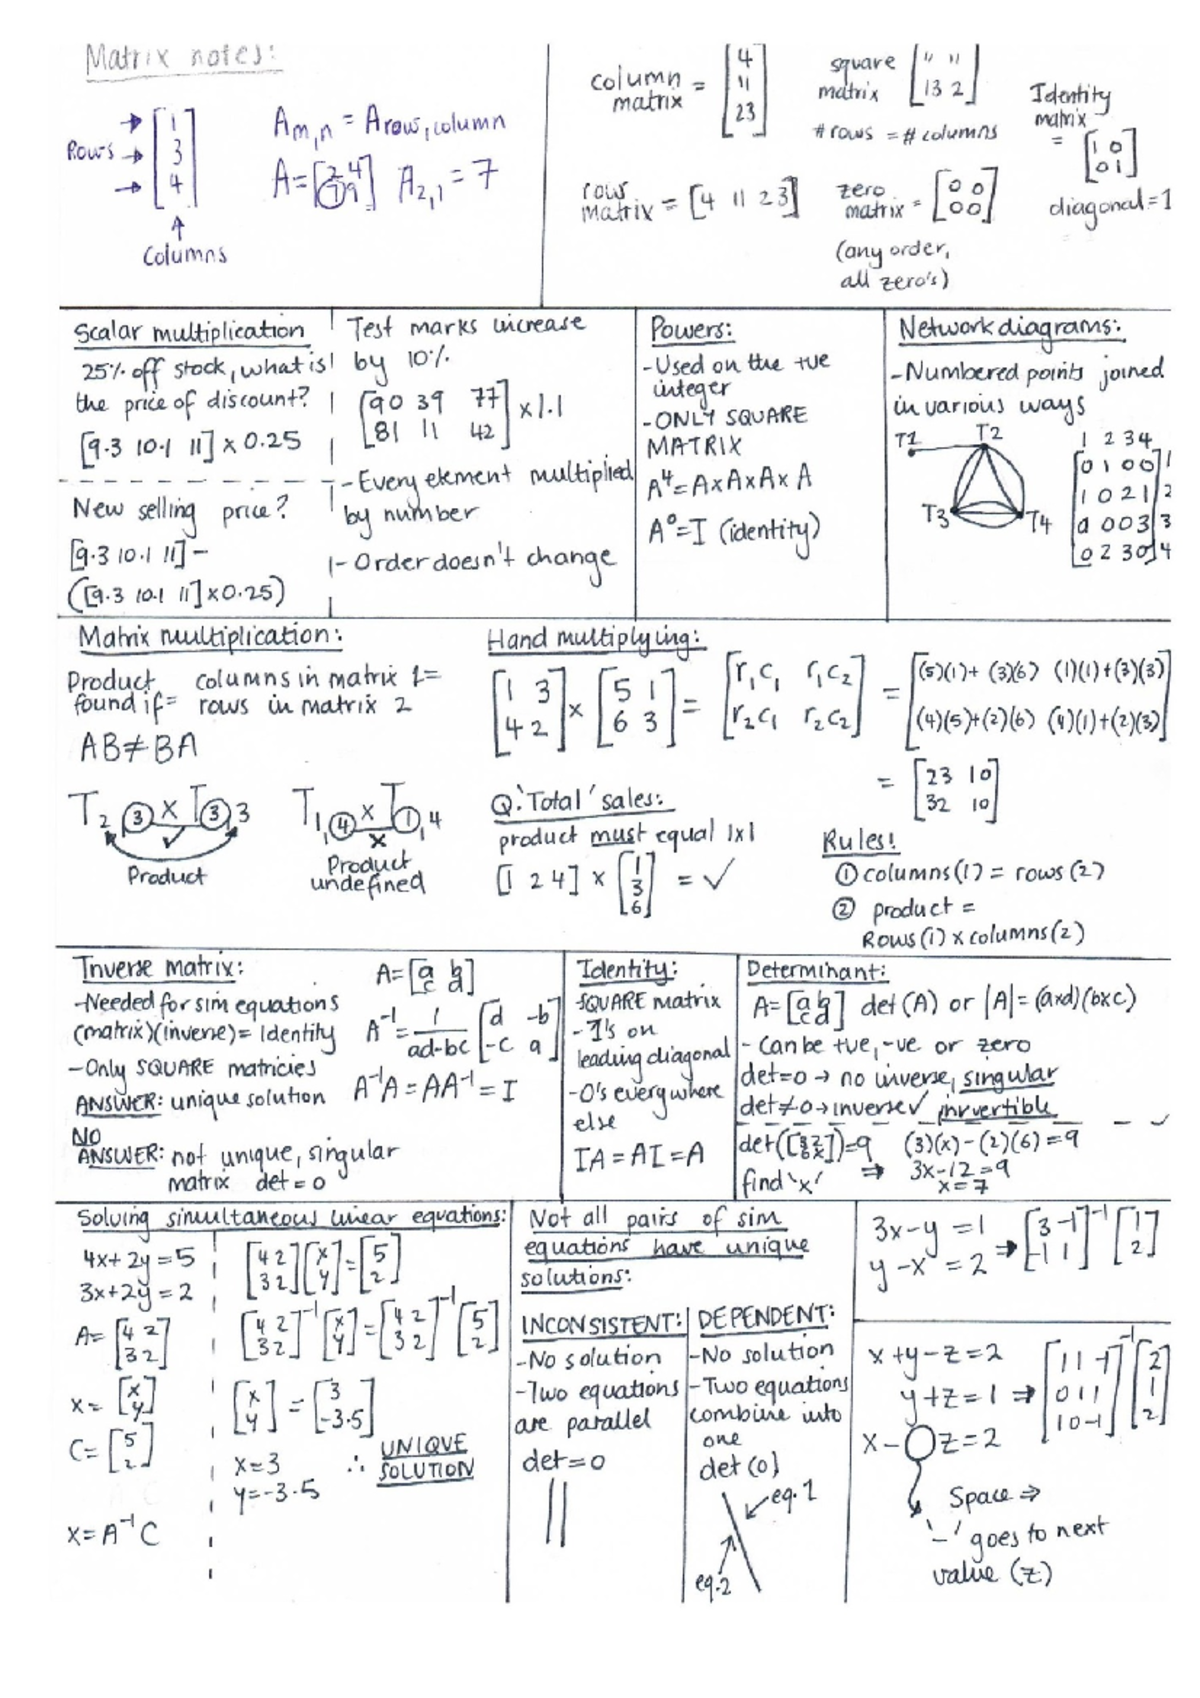 Matrix notes:
Rows → [1
3
4]
↑
Columns
Am,n = Arow,column
A=[2 4
7 9] A2,1 = 7
column matrix = [4
11
23]
square matrix [11 11
13 2]
# rows = # columns
Identity matrix = [1 0
0 1]
diagonal=1
row matrix = [4 11 23]
zero matrix = [0 0
0 0]
(any order,
all zero's)
Scalar multiplication
25% off stock, what is
the price of discount?
[9.3 10.1 11] x 0.25
New selling price?
[9.3 10.1 11] -
([9.3 10.1 11] x 0.25)
Test marks increase
by 10%
[90 39 77
81 11 42] x 1.1
- Every element multiplied
by number
- Order doesn't change
Powers:
- Used on the +ve
integer
- ONLY SQUARE
MATRIX
A⁴=AxAxAxA
A⁰=I (identity)
Network diagrams:
- Numbered points joined
in various ways
T1 T2
T3 T4
1 2 3 4
[0 1 0 0] 1
1 0 2 1 2
0 0 0 3 3
[0 2 3 0] 4
Matrix multiplication:
Product found if = columns in matrix 1 =
rows in matrix 2
AB≠BA
T2,3 x T3,3 ✓
Product
T1,4 x T1,4 x
Product
undefined
Hand multiplying:
[1 3
4 2] x [5 1
6 3] = [r1c1 r1c2
r2c1 r2c2] = [(5)(1)+(3)(6) (1)(1)+(3)(3)
(4)(5)+(2)(6) (4)(1)+(2)(3)]
= [23 10
32 10]
Q: 'Total' sales:
product must equal 1x1
[1 2 4] x [1
3
6] = ✓
Rules!
① columns(1) = rows(2)
② product =
Rows(1) x columns(2)
Inverse matrix:
-Needed for sim equations
(matrix)(inverse)= Identity
-Only SQUARE matricies
ANSWER: unique solution
NO
ANSWER: not unique, singular
matrix det = 0
A=[a b
c d]
A⁻¹= 1/ad-bc [d -b
-c a]
A⁻¹A = AA⁻¹ = I
Identity:
SQUARE matrix
- 1's on
leading diagonal
-0's everywhere
else
IA = AI = A
Determinant:
A=[a b
c d] det(A) or |A| = (axd)(bxc)
- Can be +ve, -ve or zero
det=0 → no inverse, singular
det≠0 → inverse✓ invertible
det([3 2
6 x])=9 (3)(x) - (2)(6) = 9
find 'x' ⇒ 3x-12=9
x=7
Solving simultaneous linear equations:
4x+2y=5
3x+2y=2
A= [4 2
3 2]
x= [x
y]
C= [5
2]
x= A⁻¹C
[4 2
3 2] [x
y] = [5
2]
[4 2
3 2]⁻¹ [x
y] = [4 2
3 2]⁻¹ [5
2]
[x
y] = [3
-3.5]
x=3
y=-3.5
∴ UNIQUE
SOLUTION
Not all pairs of sim
equations have unique
solutions:
INCONSISTENT:
-No solution
-Two equations
are parallel
det=0
DEPENDENT:
-No solution
-Two equations
combine into
one
det(0)
eq.1
eq.2
3x-y=1
y-x=2 ⇒ [3 -1
-1 1]⁻¹ [1
2]
x+y-z=2
y+z=1 ⇒
x- z=2
[1 1 -1
0 1 1
1 0 -1]⁻¹ [2
1
2]
Space ⇒
'-' goes to next
value (z)